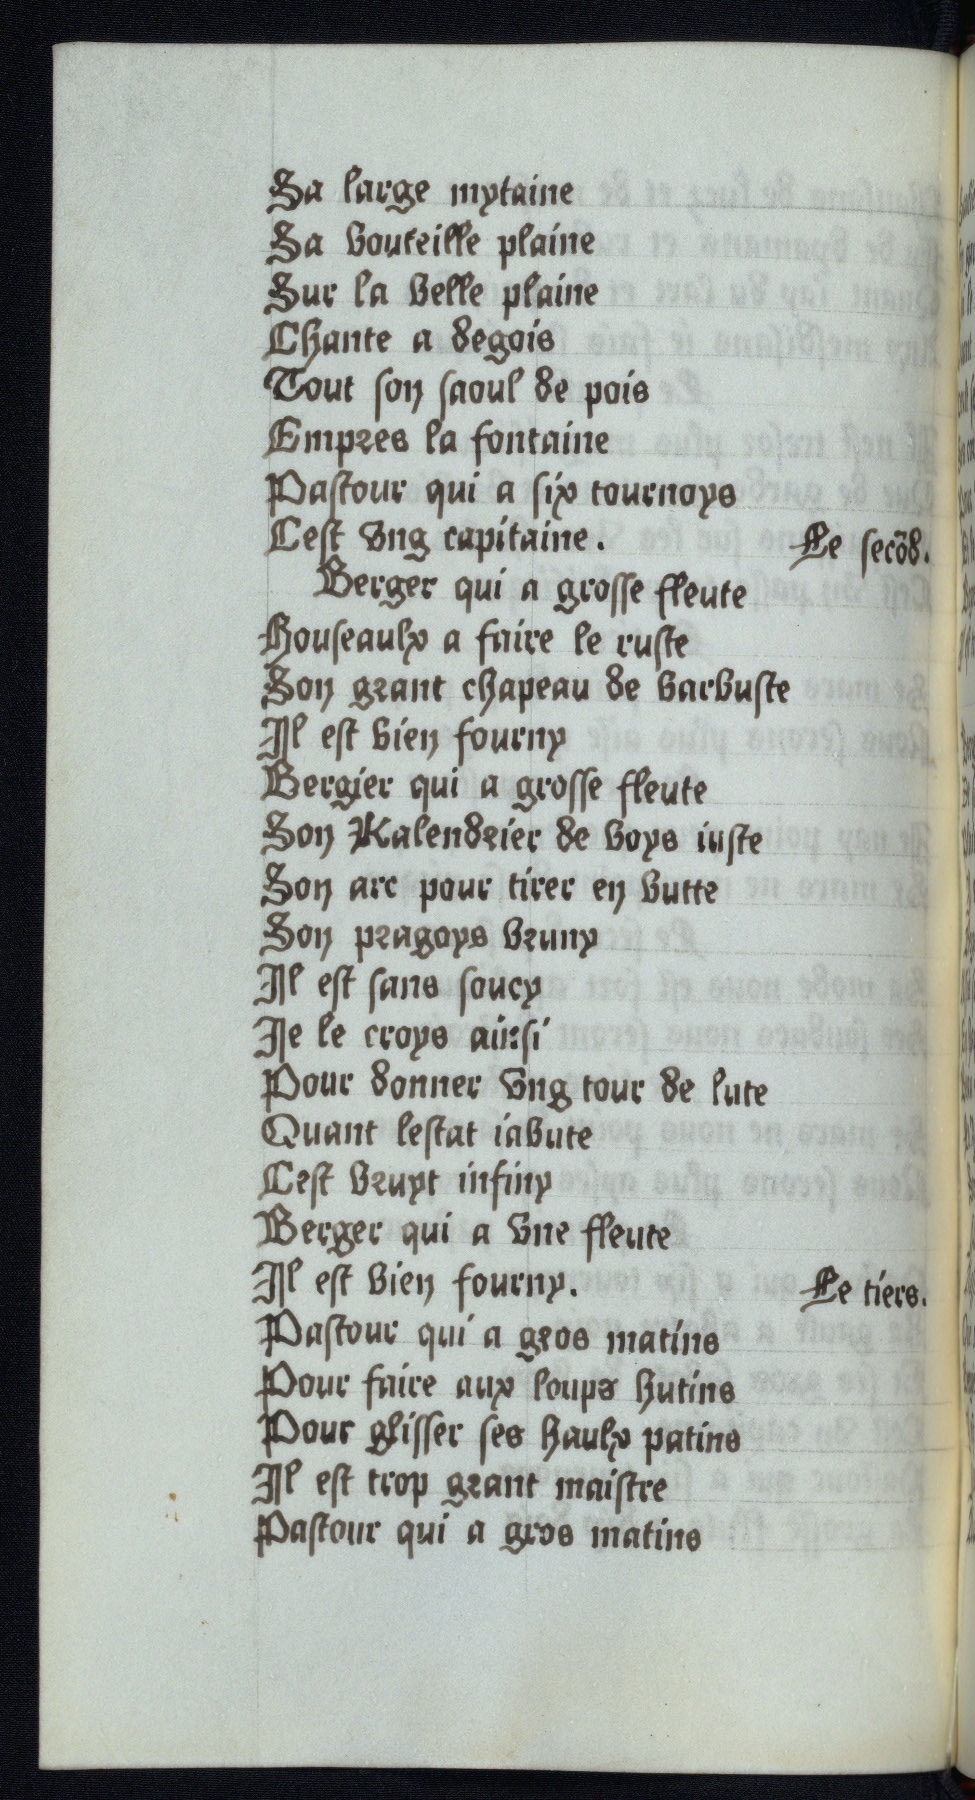 Sa large mytaine
Sa bouteille plaine
Sur la belle plaine
Chante a degois
Tout son saoul de pois
Empres la fontaine
Pastour qui a six tournoys
Cest vng capitaine.
Le secõd.
Berger qui a grosse fleute
Houseaulx a faire le ruste
Son grant chapeau de barbuste
Il est bien fourny
Bergier qui a grosse fleute
Son Kalendrier de boys iuste
Son arc pour tirer en butte
Son pragoys bruny
Il est sans soucy
Ie le croys ainsi
Pour donner vng tour de lute
Quant lestat iabute
Cest bruyt infiny
Berger qui a vne fleute
Il est bien fourny.
Le tiers.
Pastour qui a gros matins
Pour faire aux loups hutins
Pour glisser ses haulx patins
Il est trop grant maistre
Pastour qui a gros matins